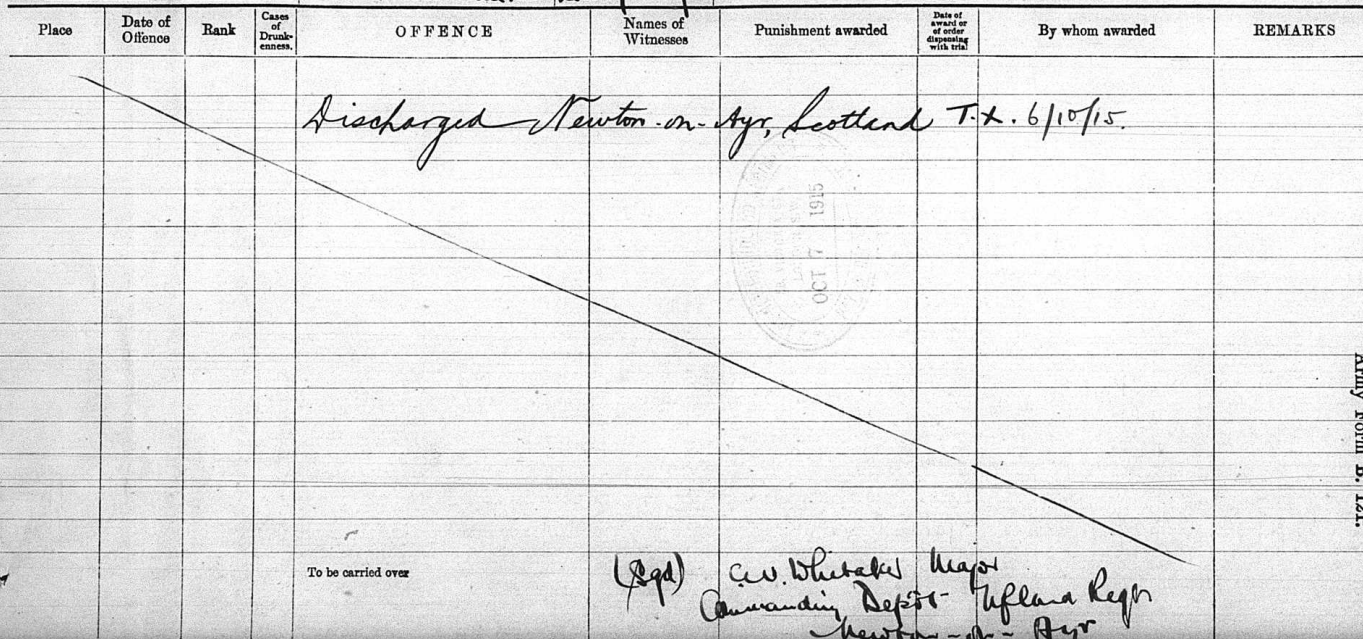 Place Date of Offence Rank Cases of Drunk-enness. OFFENCE Names of Witnesses Punishment awarded Date of award or of order dispensing with trial By whom awarded REMARKS
Discharged Newton-on-Ayr, Scotland T.X. 6/10/15.
OCT 7 1915
To be carried over
(Sgd) C.W. Whitaker Major
Commanding Depôt Nfland Regt
Newton-on-Ayr
Army Form B. 121.